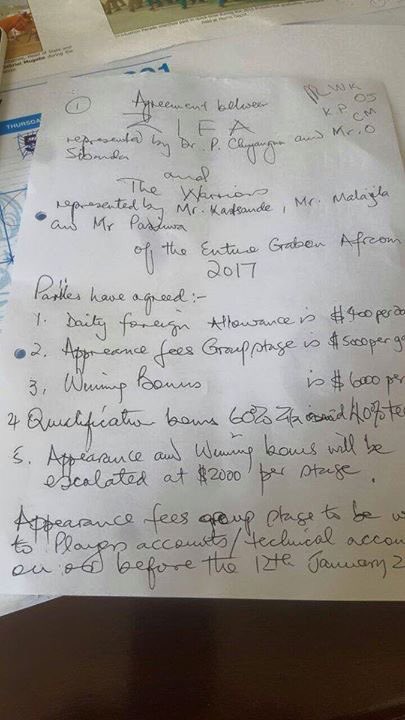 Head of State and
Gabriel Mugabe during the
THURSDA
1
RWK
05
K.P.
CM
Agreement between
ZIFA
represented by Dr. P. Chiyangwa and Mr. O
Sibanda
and
The Warriors
represented by Mr. Katsande, Mr. Malajila
and Mr
of the Entire Gabon Afcon
2017
Parties have agreed :-
1. Daily foreign Allowance is $400 per da
2. Apprearance fees Group stage is $5000 per ga
3. Wining Bonus is $6000 per
4 Qualification bonus 60% Zifa and 40% te
5. Appearance and Wining bonus will be
escalated at $2000 per stage.
Appearance fees group stage to be w
to Players accounts/technical accou
on or before the 12th January 2